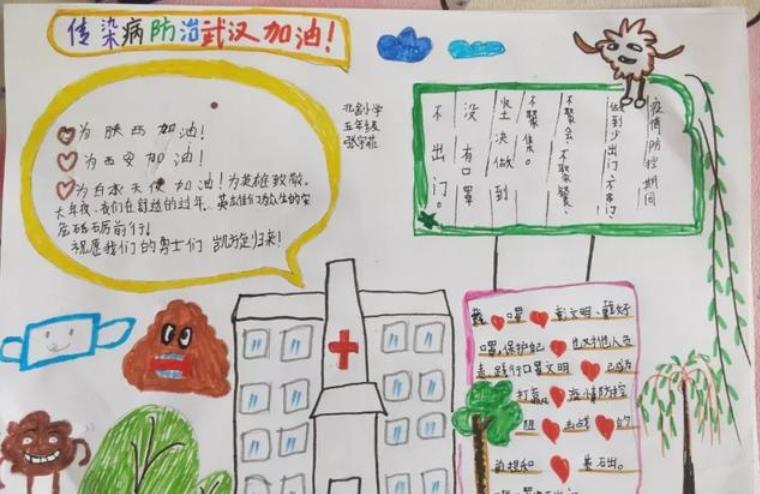 传染病防治武汉加油!
为陕西加油!
为西安加油!
为白衣天使加油!为英雄致敬。
大年夜,我们在舒适的过年,英雄们放众生的安
危砥砺前行!
祝愿我们的勇士们凯旋归来!
五年级
疫情防控期间
做到少出门,不串门、
不聚会、不聚餐、
不聚集。
坚决做到
没有口罩
不出门。
戴口罩,文明、戴好
口罩,保护自己也对他人负
责,践行口罩文明已成为
打赢疫情防控
阻击战的
前提和基石出。